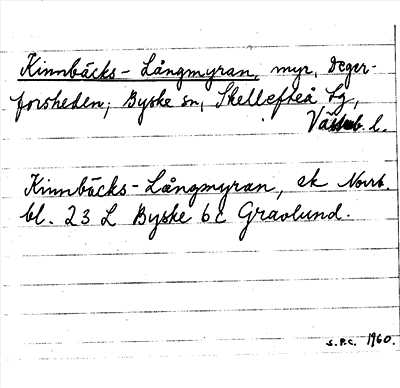 Kinnbäcks-Långmyran, myr, Deger-
forsheden, Byske sn, Skellefteå tg,
Västerb. l.
Kinnbäcks-Långmyran, ek Norrb.
bl. 23 L Byske 6c Gravlund.
S.P.C. 1960.